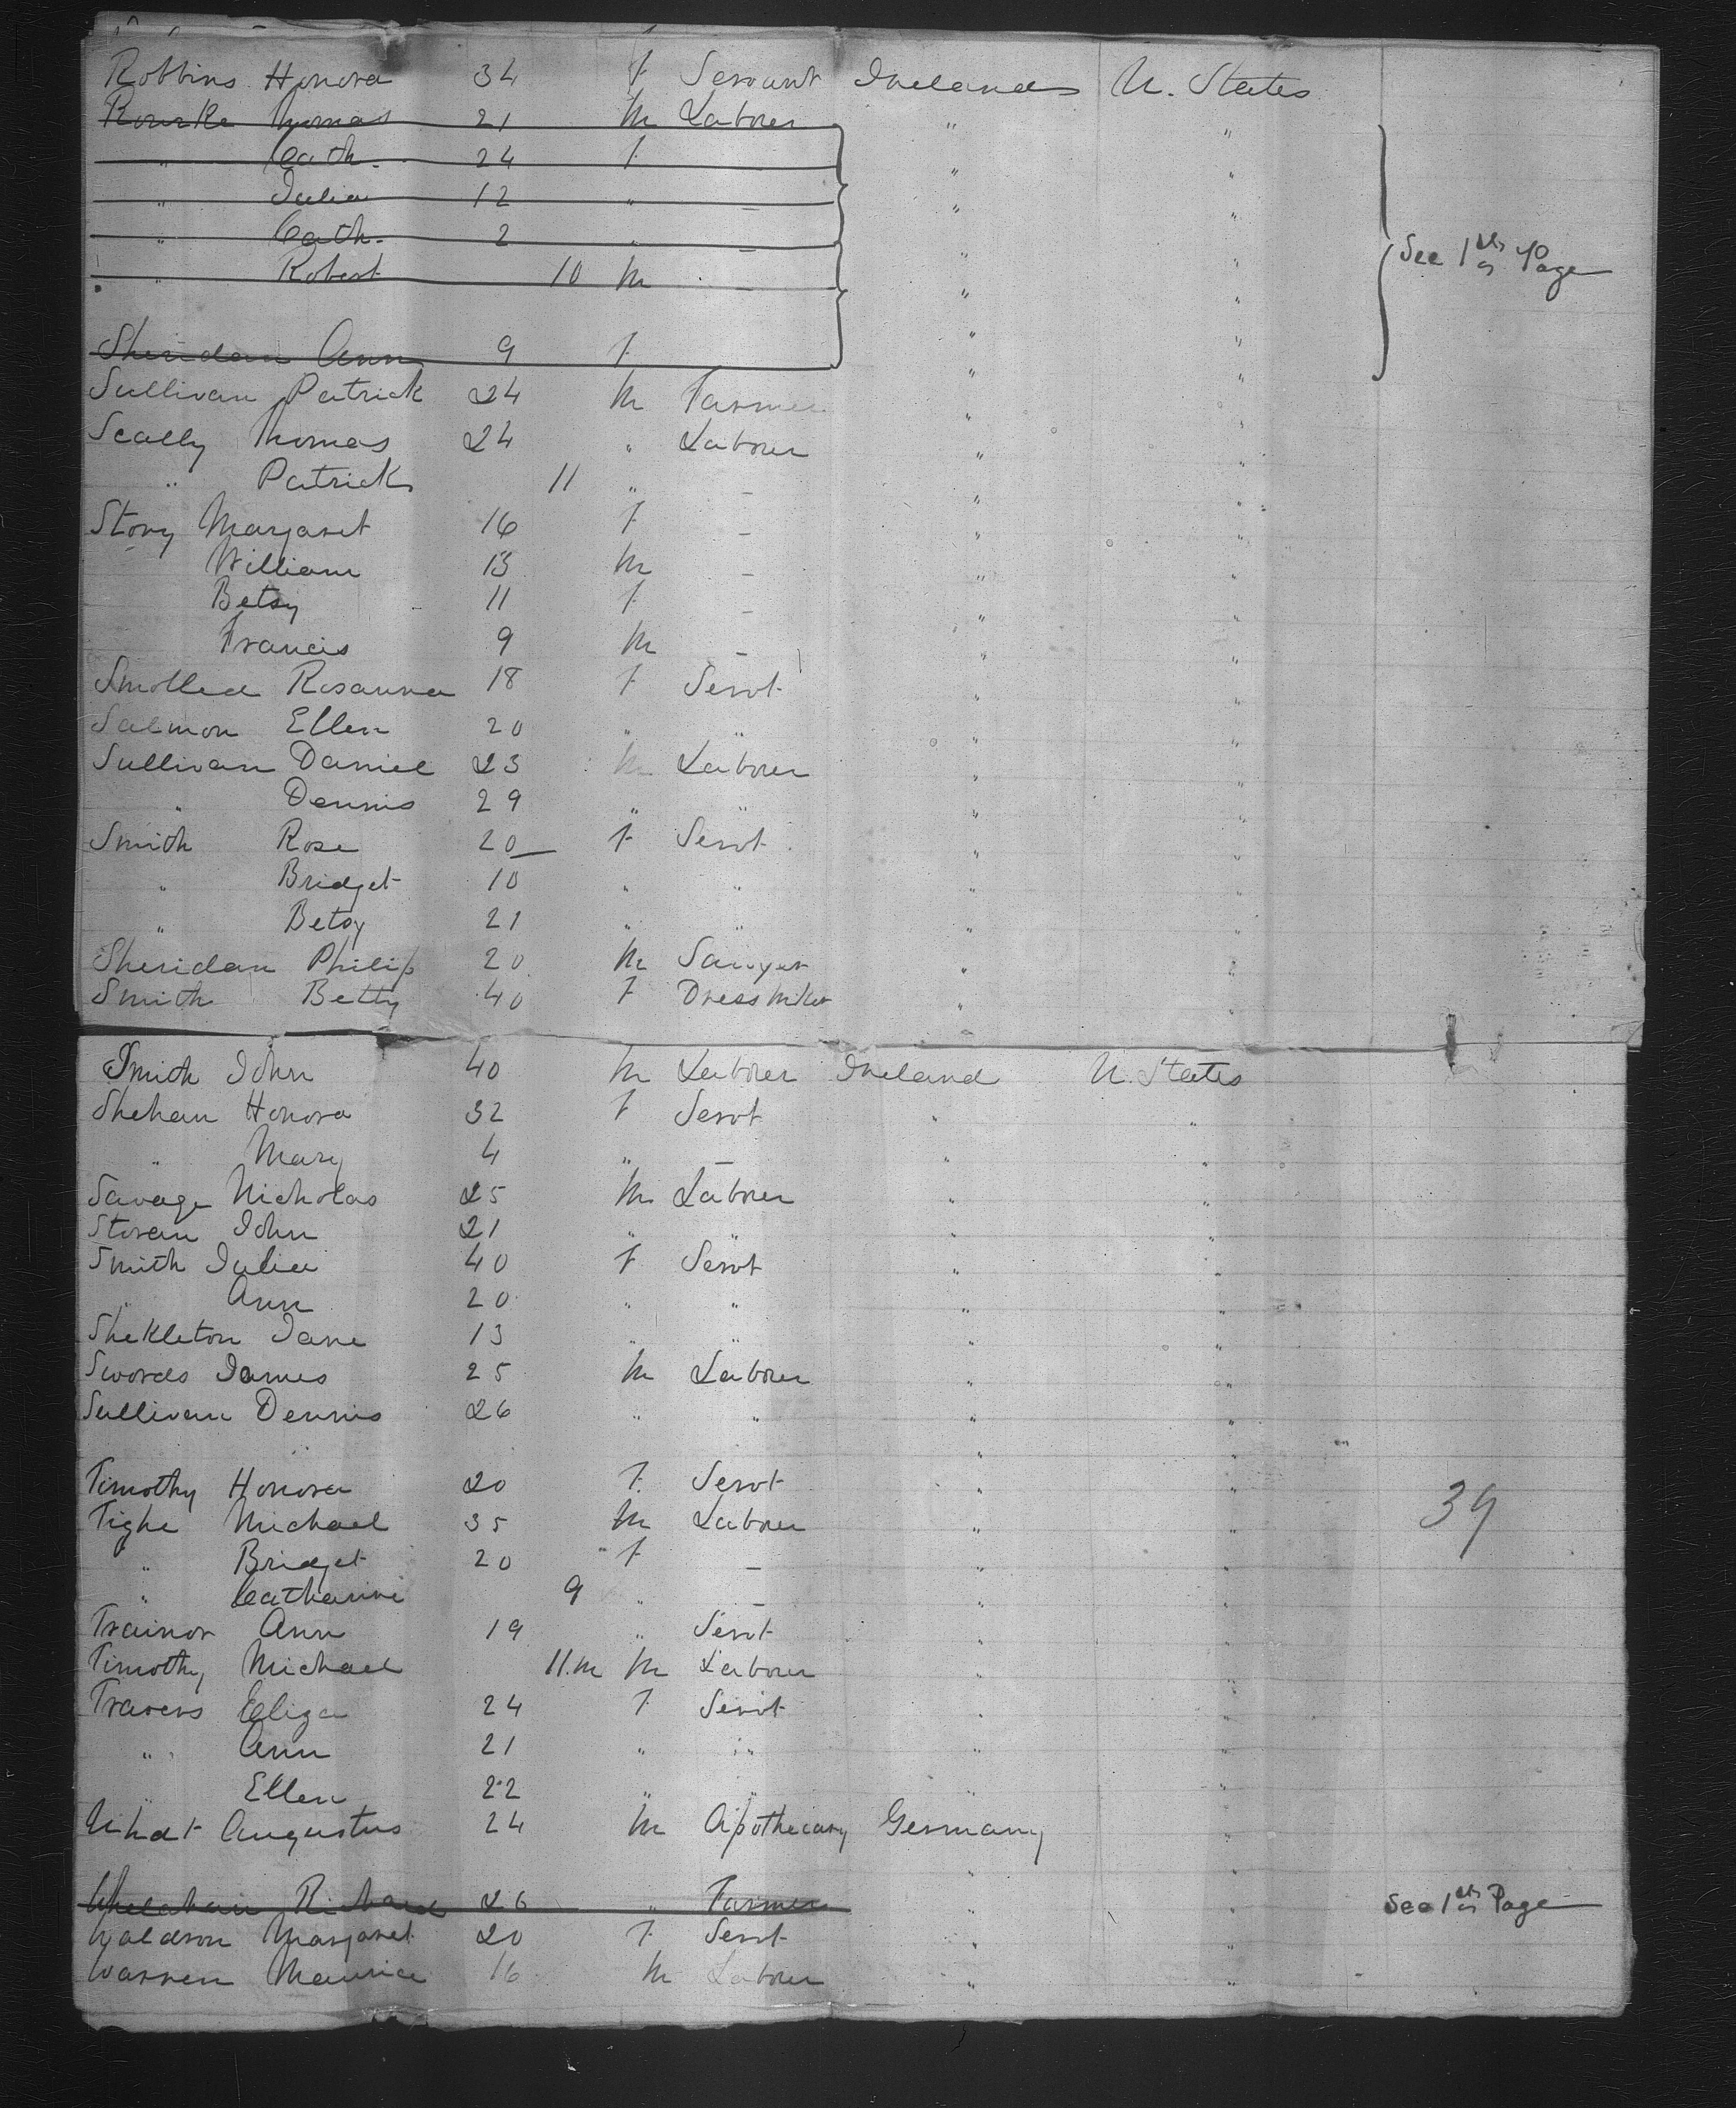 Robbins Honora 34 f Servant Ireland U. States
Rourke Thomas 21 m Laborer " "
" Cath. 24 f " "
" Julia 12 " — " "
" Cath. 2 " — " "
" Robert 10 m — " "
See 1st Page
Sheridan Ann 9 f " "
Sullivan Patrick 24 m Farmer " "
Scally Thomas 24 " Laborer " "
" Patrick 11 " — " "
Story Margaret 16 f — " "
William 13 m — " "
Betsy 11 f — " "
Francis 9 m — " "
Rosanna 18 f Servt " "
Salmon Ellen 20 " " " "
Sullivan Daniel 23 m Laborer " "
" Dennis 29 " " " "
Smith Rose 20 f Servt " "
" Bridget 10 " " " "
" Betsy 21 " " " "
Sheridan Philip 20 m Sawyer " "
Smith Betty 40 f Dress Mker " "
Smith John 40 m Laborer Ireland U. States
Shehan Honora 32 f Servt " "
" Mary 4 " — " "
Savage Nicholas 25 m Laborer " "
Storan John 21 " " " "
Smith Julia 40 f Servt " "
" Ann 20 " " " "
Shekleton Jane 13 " " " "
Swords James 25 m Laborer " "
Sullivan Dennis 26 " " " "
Timothy Honora 20 f. Servt " "
Tighe Michael 35 m Laborer " " 39
" Bridget 20 " f — " "
" Catharine 9 " — " "
Trainor Ann 19 " Servt " "
Timothy Michael 11.m m Laborer " "
Travers Eliza 24 f Servt " "
" Ann 21 " " " "
" Ellen 22 " " " "
Augustus 24 m Apothecary Germany "
Richard 26 " Farmer " " See 1st Page
Waldron Margaret 20 f Servt " "
Warren Maurice 16 m Laborer " "